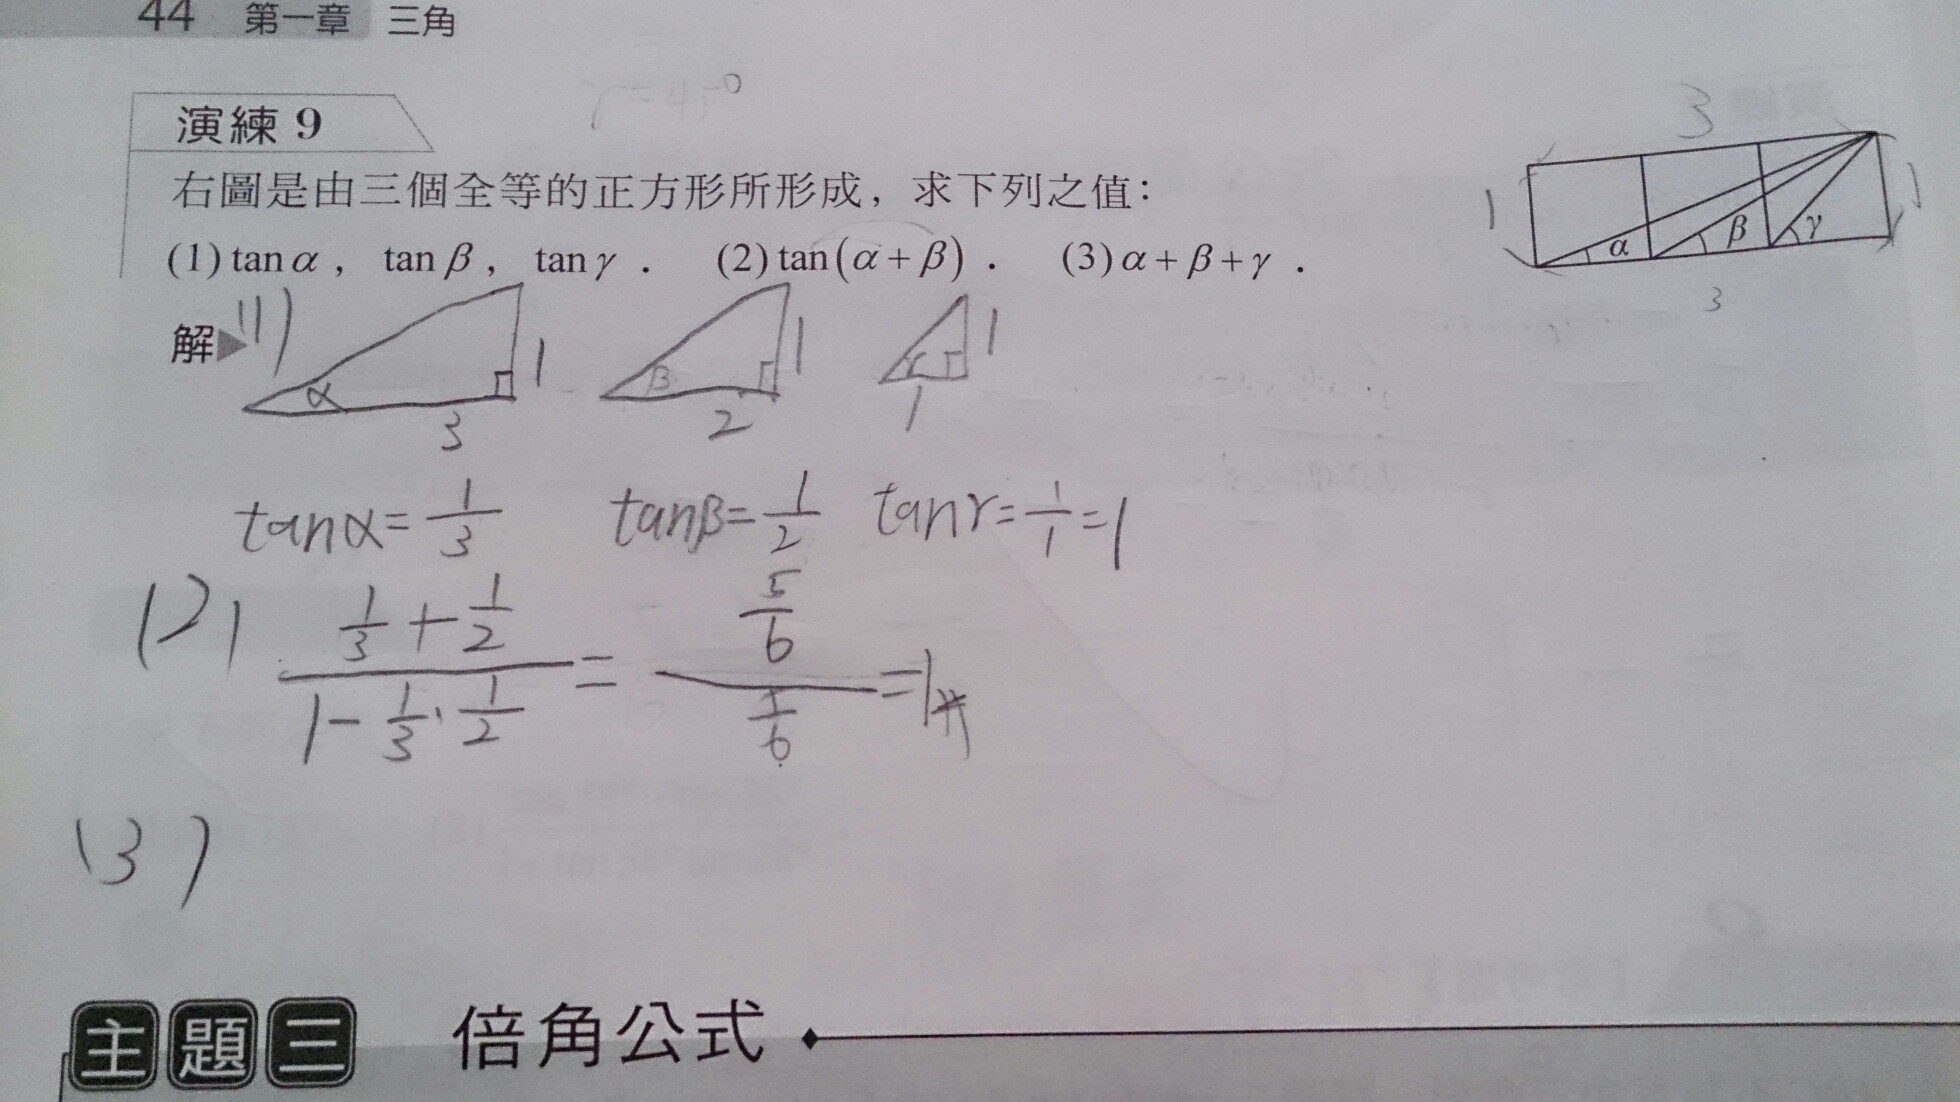 44 第一章 三角
演練 9
γ=45°
右圖是由三個全等的正方形所形成，求下列之值：
(1) tan α， tan β， tan γ． (2) tan(α+β)． (3) α+β+γ．
3
1
1
α β γ
3
解▶(1)
α 3 1
β 2 1
γ 1 1
tanα=1/3 tanβ=1/2 tanγ=1/1=1
(2) (1/3+1/2)/(1-1/3·1/2) = (5/6)/(5/6) =1#
(3)
主題三 倍角公式